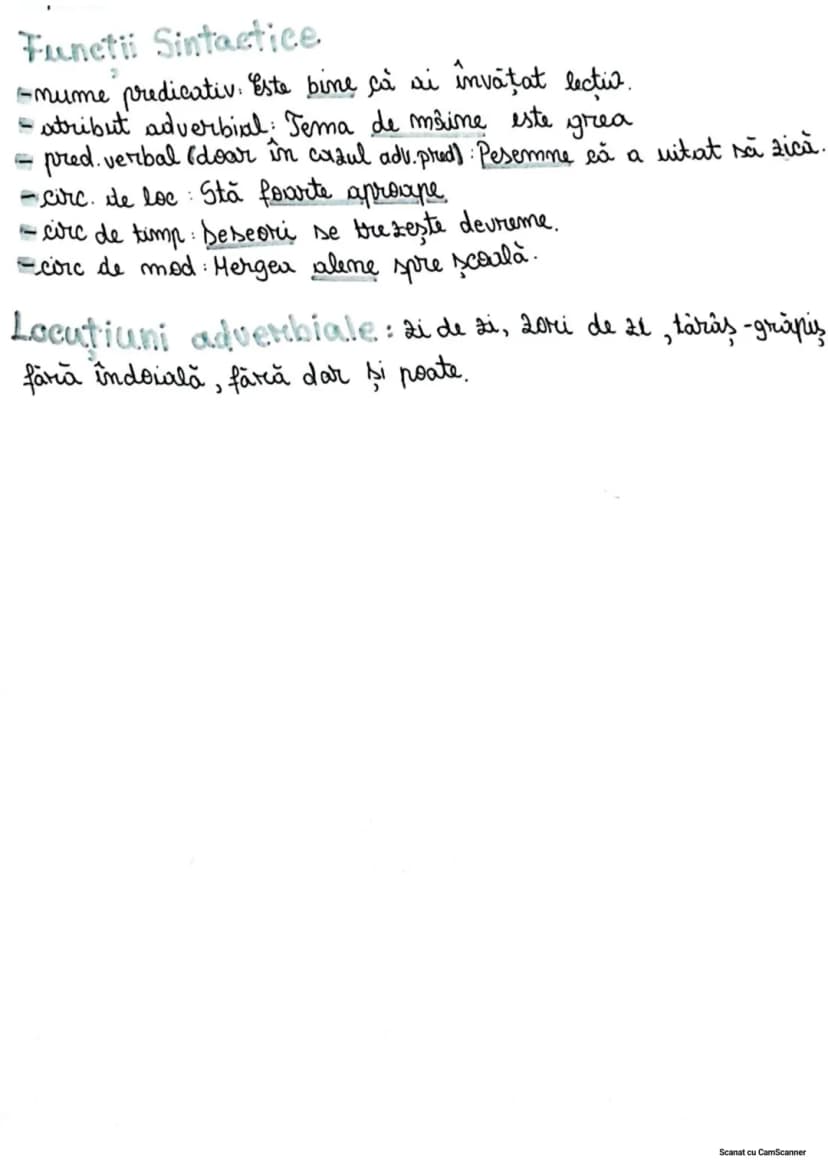 Funcții Sintactice
-nume predicativ: Este bine că ai învățat lecția.
- atribut adverbial: Tema de mâine este grea
- pred. verbal (doar în cazul adv. pred) : Pesemne că a uitat să zică.
- circ. de loc : Stă foarte aproape
- circ de timp : Deseori se trezește devreme.
-circ de mod : Mergea alene spre școală.
Locuțiuni adverbiale : zi de zi, zori de zi, târâș-grăpiș
fără îndoială, fără dar și poate.
Scanat cu CamScanner